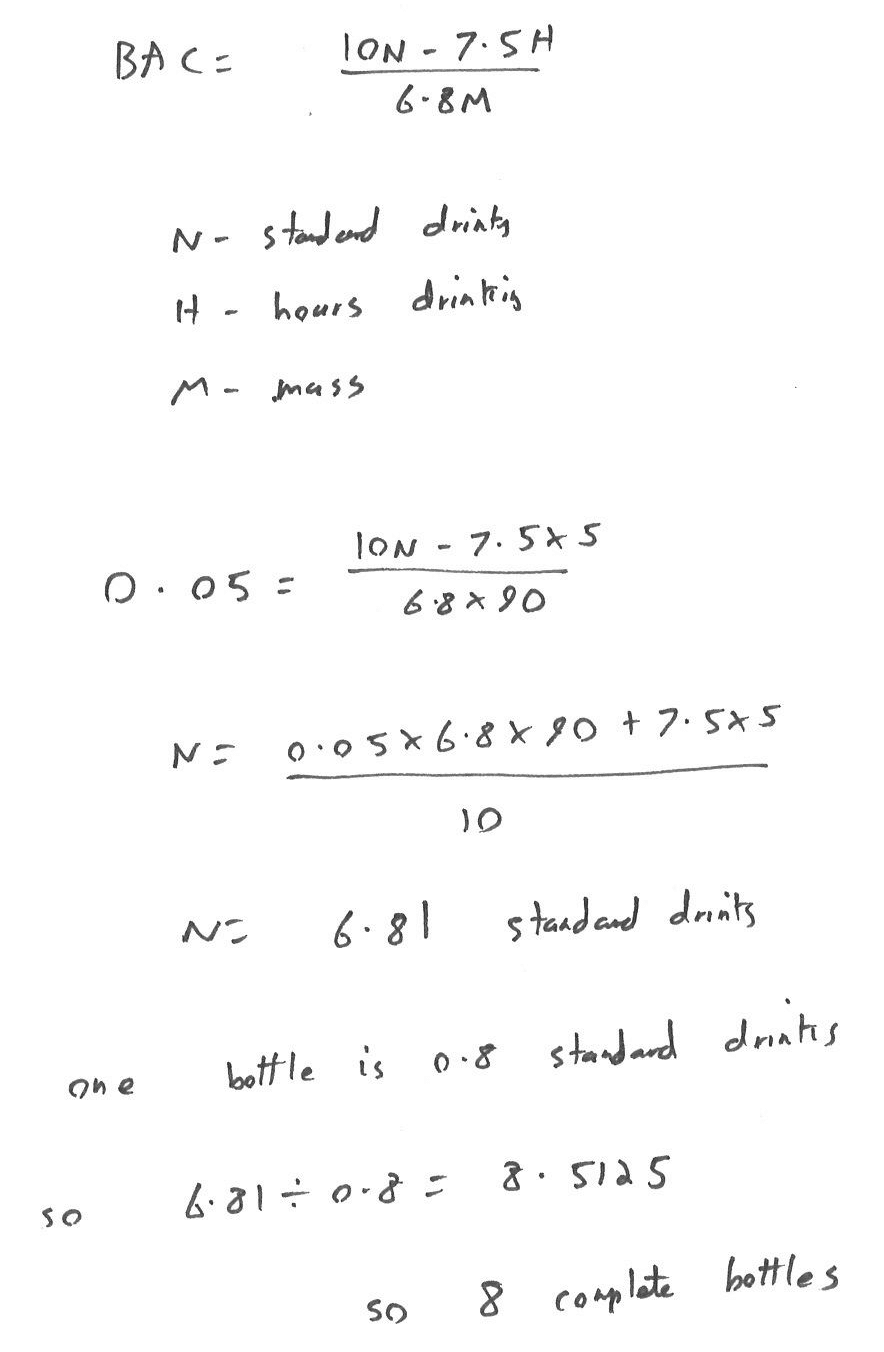 BAC = 10N - 7.5H
6.8M
N - standard drinks
H - hours drinking
M - mass
0.05 = 10N - 7.5×5
6.8×90
N = 0.05×6.8×90 + 7.5×5
10
N = 6.81 standard drinks
one bottle is 0.8 standard drinks
so 6.81 ÷ 0.8 = 8.5125
so 8 complete bottles